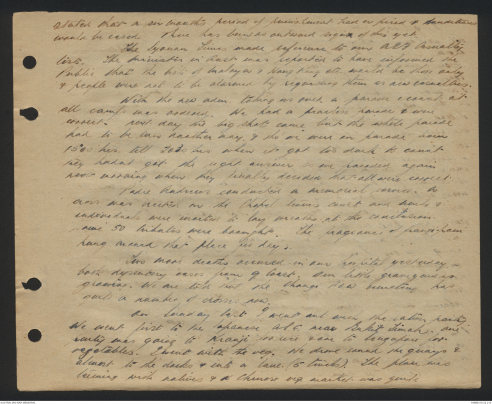 stated that a six months period of punishment had expired & conditions
would be eased. There has been no outward sign of this yet.
The Syonan Times made reference to our A.I.F. Casualty
lists. The Minister in was reported to have informed the
Public that the lists of Malaya & Hong Kong etc. would be those only
& people were not to be alarmed by regarding them as new casualties.
With the new admin. taking over such a parade count at
all camps was ordered. We had a practice parade & were
correct. Next day the big show came, but the whole parade
had to be very & the were on parade from
1500 hrs. till 2030 hrs when it got too dark to count
They hadn't got the right answer so we paraded again
next morning where they finally decided that all were correct.
Padre Andrews conducted a memorial service. A
cross was erected in the Chapel court and units &
individuals were invited to lay wreaths at the conclusion
some 50 tributes were brought. The fragrance of frangipani
hung round that place for days.
Two more deaths occurred in our hospital yesterday —
both dysentery cases from Our little graveyard is
growing. We are told that the Changi cemetery has
quite a number of crosses now.
On Sunday last I went out over the ration
We went first to the Japanese A.S.C. near Bukit Timah. One
party was going to Kranji for rice & one to Singapore for
vegetables. I went with the veg. We drove round the quays &
almost to the docks & into a lane (5 trucks). The place was
teeming with natives & a Chinese veg market was quite